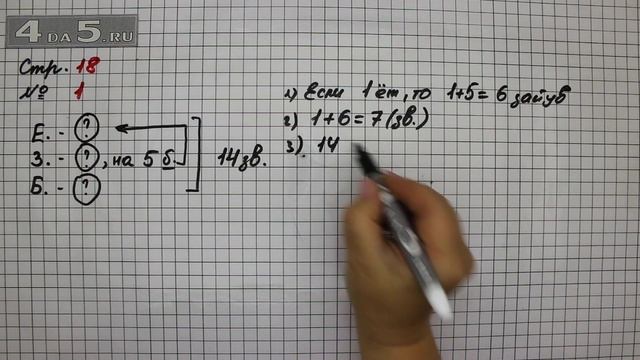 4DA5.RU
Стр. 18
№ 1
Е. - ?
З. - ?, на 5 б.
Б. - ?
14 зв.
1) Если 1 ёж, то 1+5=6 зайцев
2) 1+6=7 (зв.)
3) 14